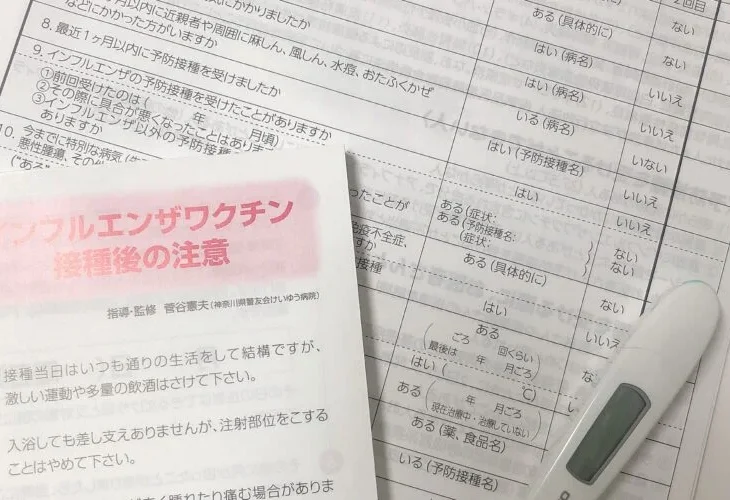 にかかりましたか
に近親者や周囲に麻しん、風しん、水痘、おたふくかぜ
などにかかった方がいますか
8. 最近1ヶ月以内に予防接種を受けましたか
9. インフルエンザの予防接種を受けたことがありますか
①前回受けたのは( 年 月頃)
②その際に具合が悪くなったことはありま
③インフルエンザ以外の予防接種
ありますか
10. 今までに特別な病気
悪性腫瘍、その
("ある"
ったことが
免疫不全症、
すか
接種
2回目
ある(具体的に) ない
はい(病名) ない
はい(病名) いいえ
いる(病名) いいえ
はい(予防接種名) いない
はい いいえ
いいえ
ある(症状: ない
ある(予防接種名: ない
(症状:
ある(具体的に) ない
はい いいえ
ある
ごろ 回くらい
最後は 年 月ごろ
はい( ℃)
ある 年 月ごろ
現在治療中・治療していない
ある(薬、食品名)
いる(予防接種名)
インフルエンザワクチン
接種後の注意
指導・監修 菅谷憲夫(神奈川県警友会けいゆう病院)
接種当日はいつも通りの生活をして結構ですが、
激しい運動や多量の飲酒はさけて下さい。
入浴しても差し支えありませんが、注射部位をこする
ことはやめて下さい。
腫れたり痛む場合がありま